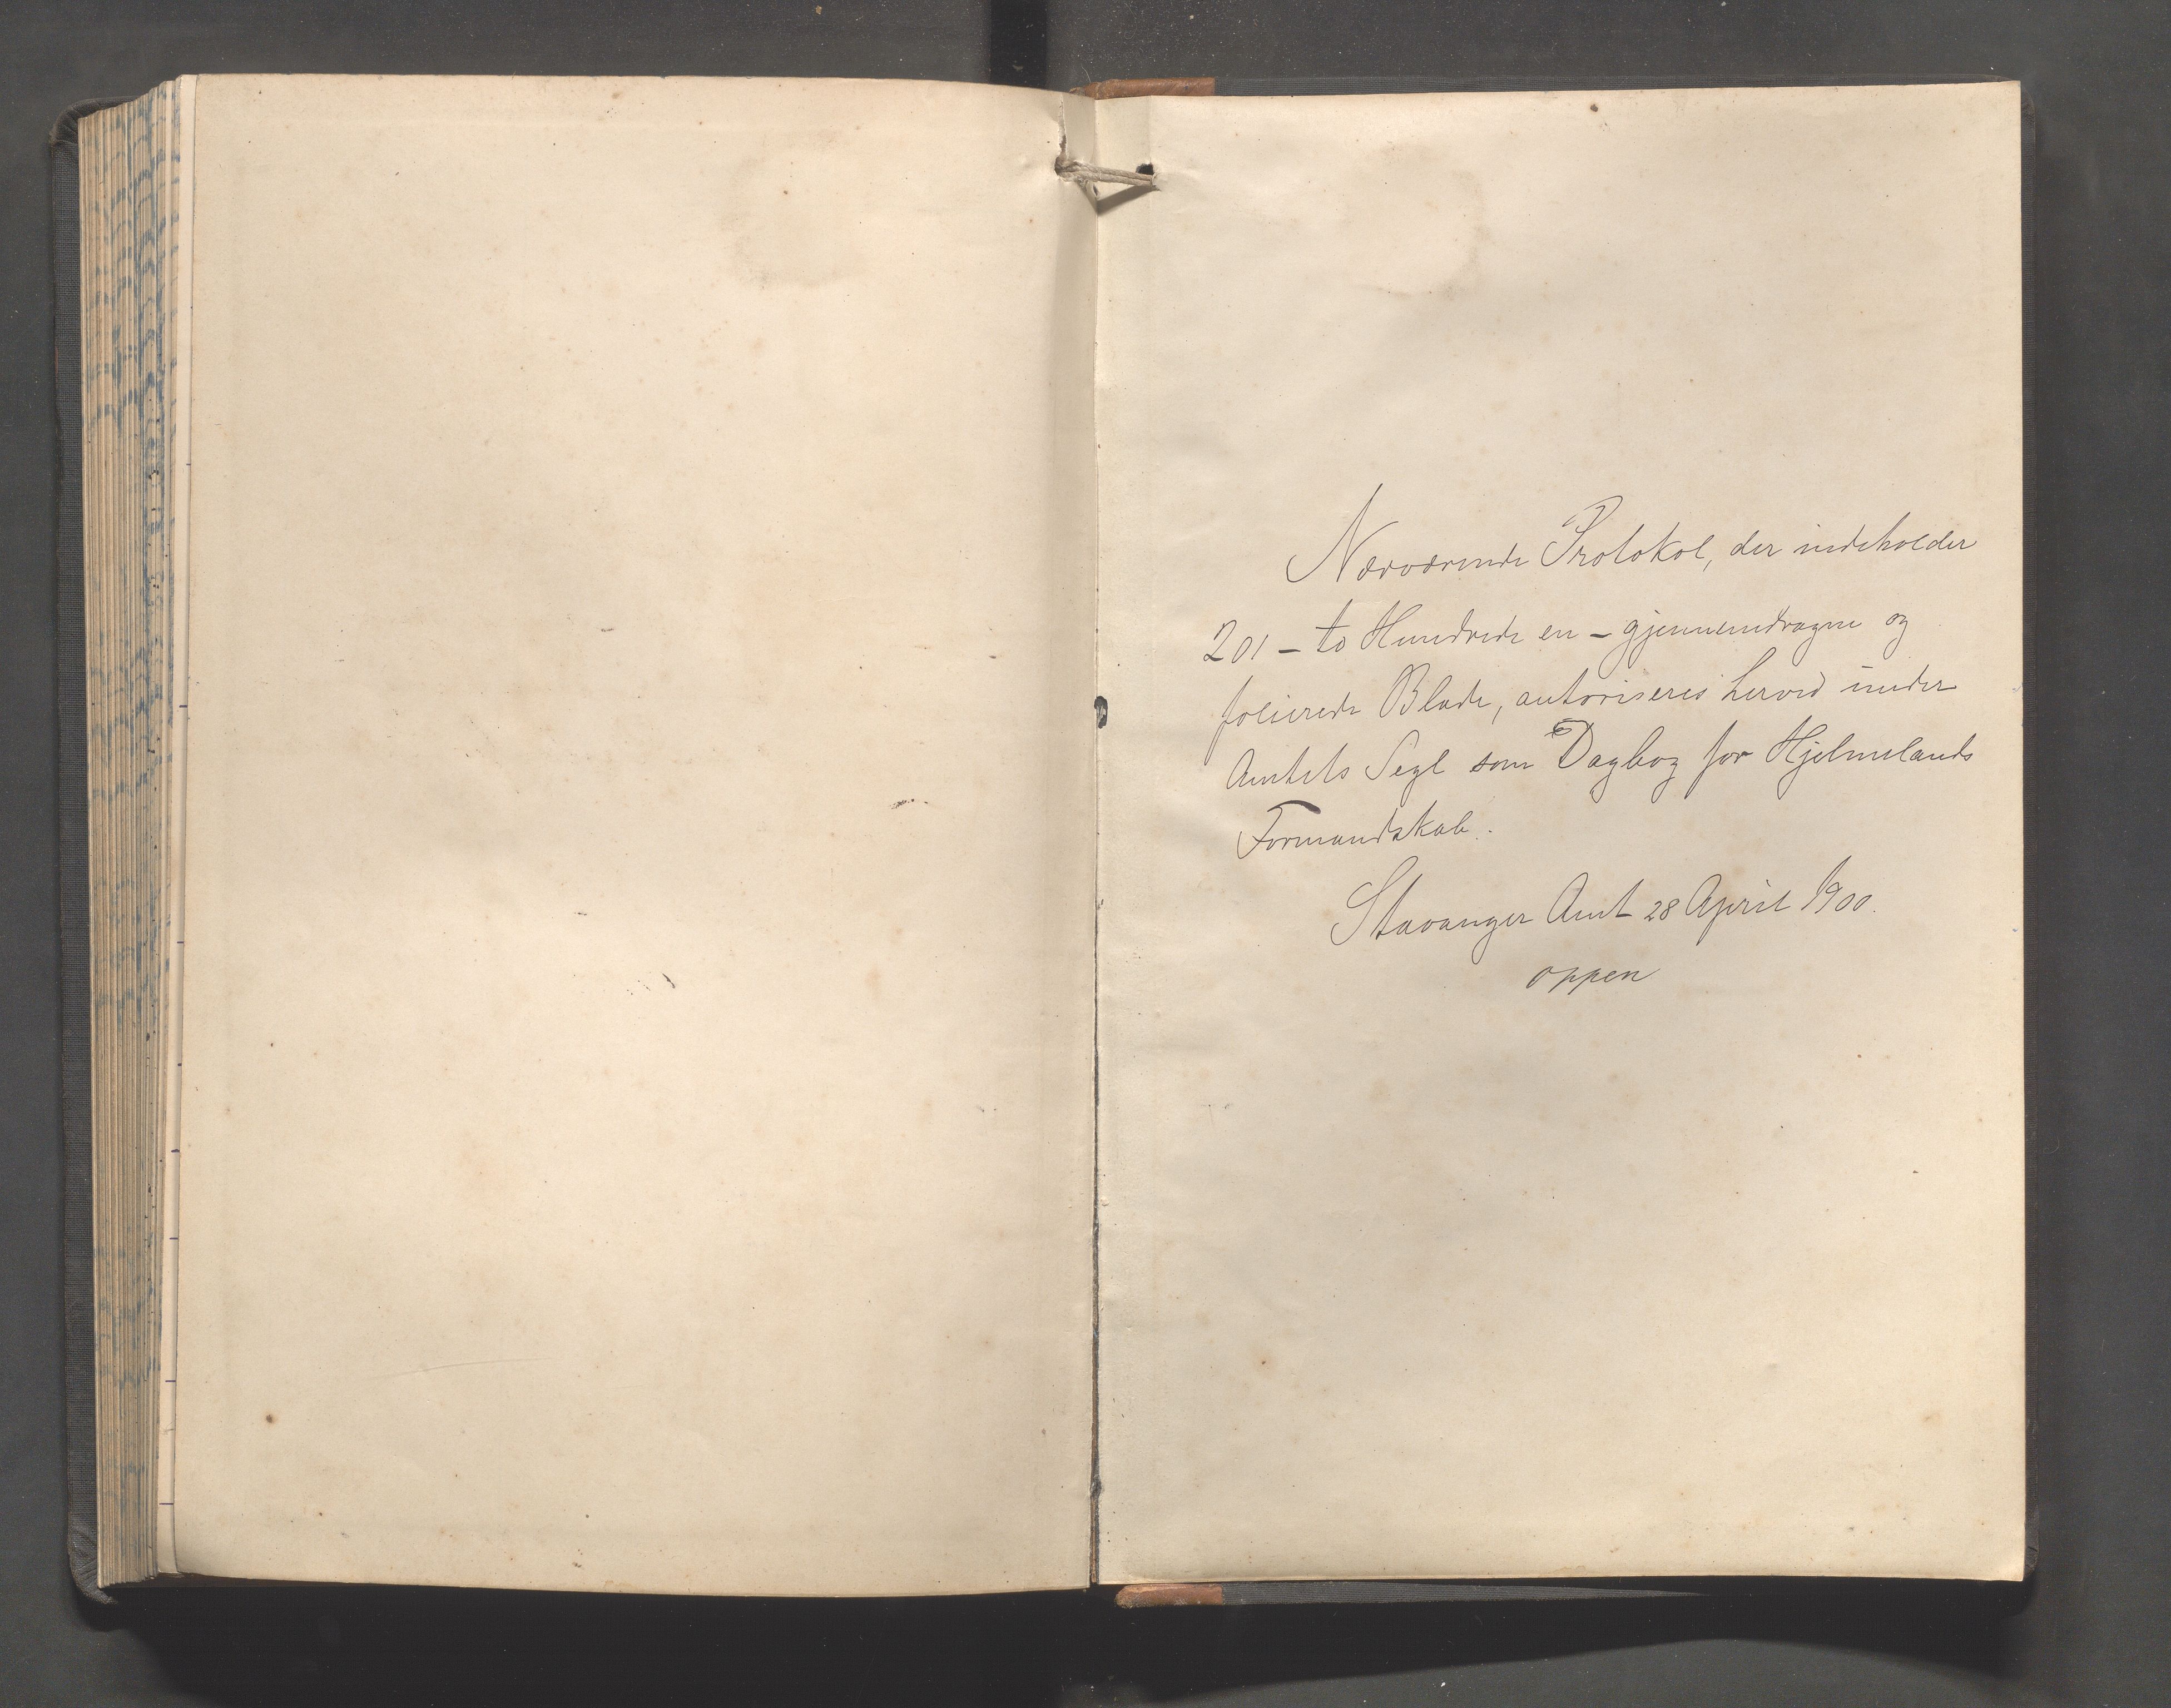 Nærværende Protokol, der indeholder
201 – to Hundrede en – gjennemdragne og
folierede Blade, autoriseres herved under
Amtets Segl som Dagbog for Hjelmelands
Formandskab.
Stavanger Amt 28 April 1900.
Oppen